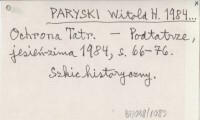 PARYSKI Witold H. 1984...
Ochrona Tatr. – Podtatrze,
jesień/zima 1984, s. 66–76.
Szkic historyczny.